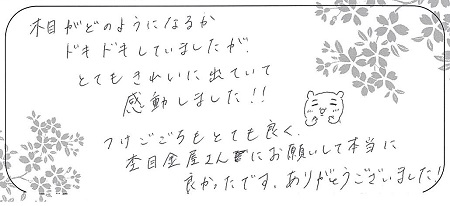 木目がどのようになるか
ドキドキしていましたが、
とてもきれいに出ていて
感動しました!!
つけごこちもとても良く、
杢目金屋さんにお願いして本当に
良かったです。ありがとうございました!